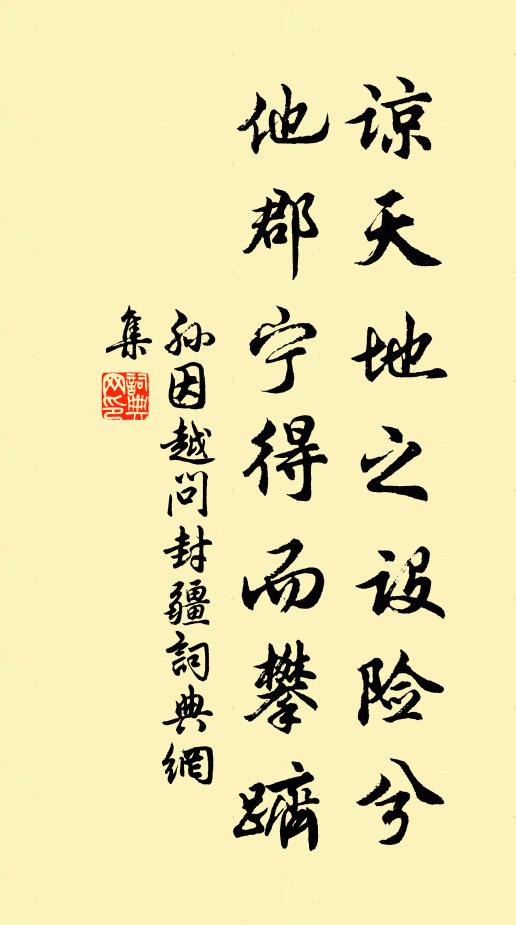 谅天地之设险兮
他郡宁得而攀跻
孙因越问封疆詞典網
集
詞典
网印